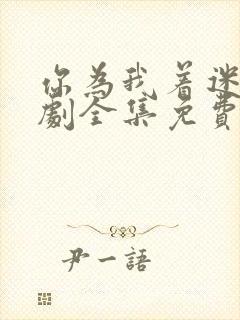 你為我着迷
劇全集免費
尹一語